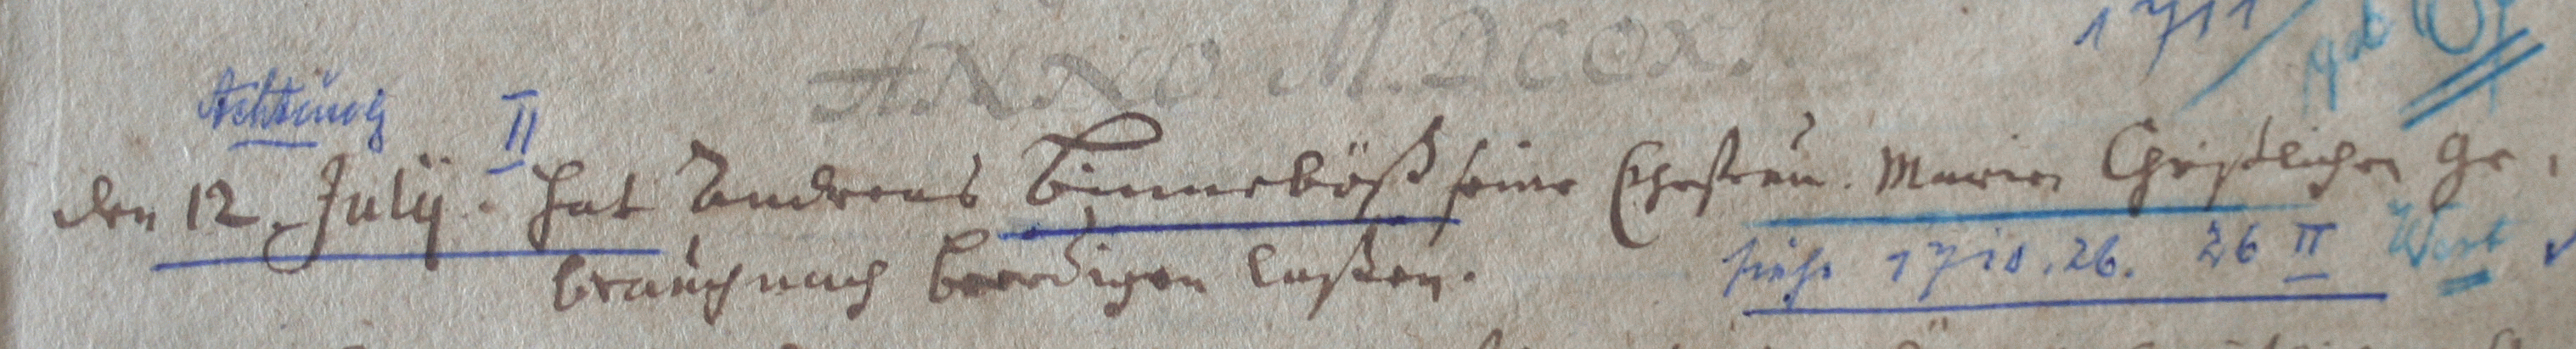 1711
ANNO M.DCCXI
Achtung II
den 12. July. hat Andreas Binneböß seine Ehefrau. Marien Christlichen Ge,
brauch nach beerdigen laßen.
siehe 1710.26. 26 II West